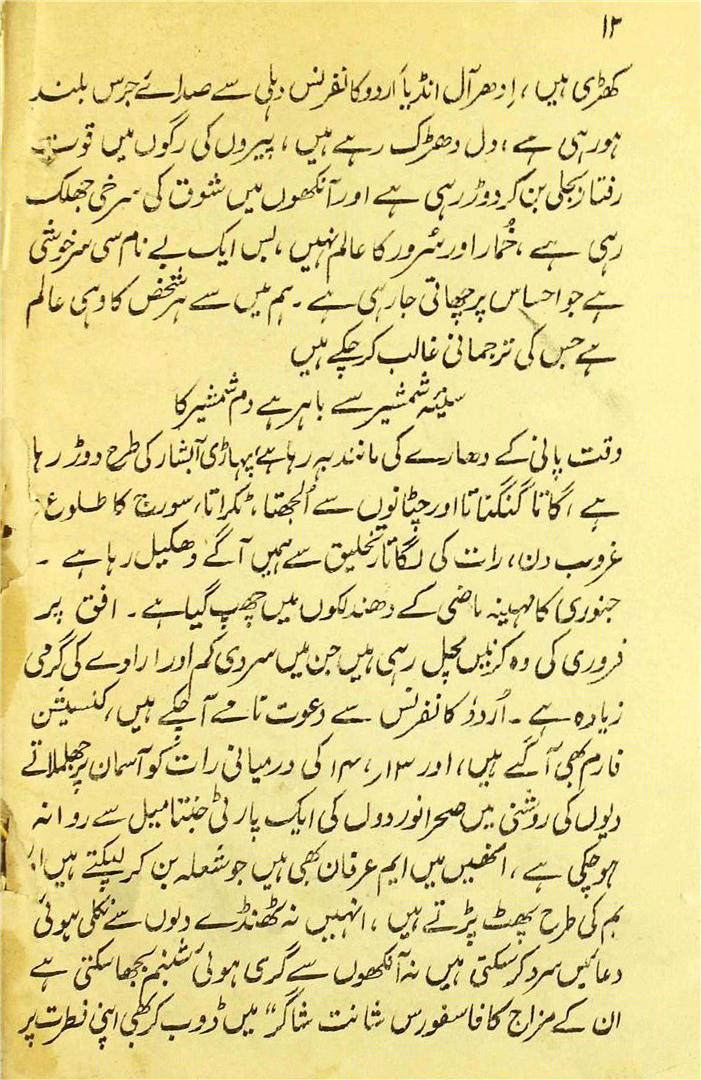 ۱۲
کھڑی ہیں، اِدھر آل انڈیا اردو کانفرنس دہلی سے صدائے جرس بلند
ہو رہی ہے، دل دھڑک رہے ہیں، پیروں کی رگوں میں قوت
رفتار بجلی بن کر دوڑ رہی ہے اور آنکھوں میں شوق کی سرخی جھلک
رہی ہے، خُمار اور سُرور کا عالم نہیں، بس ایک بے نام سی سرخوشی
ہے جو احساس پر چھاتی جا رہی ہے۔ ہم میں سے ہر شخص کا وہی عالم
ہے جس کی ترجمانی غالب کر چکے ہیں
سینۂ شمشیر سے باہر ہے دم شمشیر کا
وقت پانی کے دھارے کی مانند بہہ رہا ہے، پہاڑی آبشار کی طرح دوڑ رہا
ہے، گاتا گنگناتا اور چٹانوں سے اُلجھتا، ٹکراتا، سورج کا طلوع
غروب دن، رات کی لگاتار تخلیق سے ہمیں آگے دھکیل رہا ہے۔
جنوری کا مہینہ ماضی کے دھندلکوں میں چھپ گیا ہے۔ افق پر
فروری کی وہ کرنیں مچل رہی ہیں جن میں سردی کم اور ارادے کی گرمی
زیادہ ہے۔ اُردو کانفرنس سے دعوت نامے آ چکے ہیں، کنسیشن
فارم بھی آ گئے ہیں، اور ۱۳، ۱۴ کی درمیانی رات کو آسمان پر جھلملاتے
دیوں کی روشنی میں صحرا نوردوں کی ایک پارٹی جنتا میل سے روانہ
ہو چکی ہے، انھیں میں ایم عرفان بھی ہیں جو شعلہ بن کر لپکتے ہیں
بم کی طرح پھٹ پڑتے ہیں، انہیں نہ ٹھنڈے دلوں سے نکلی ہوئی
دعائیں سرد کر سکتی ہیں نہ آنکھوں سے گری ہوئی شبنم بجھا سکتی ہے
ان کے مزاج کا فاسفورس شانت شاگر" میں ڈوب کر بھی اپنی فطرت پر